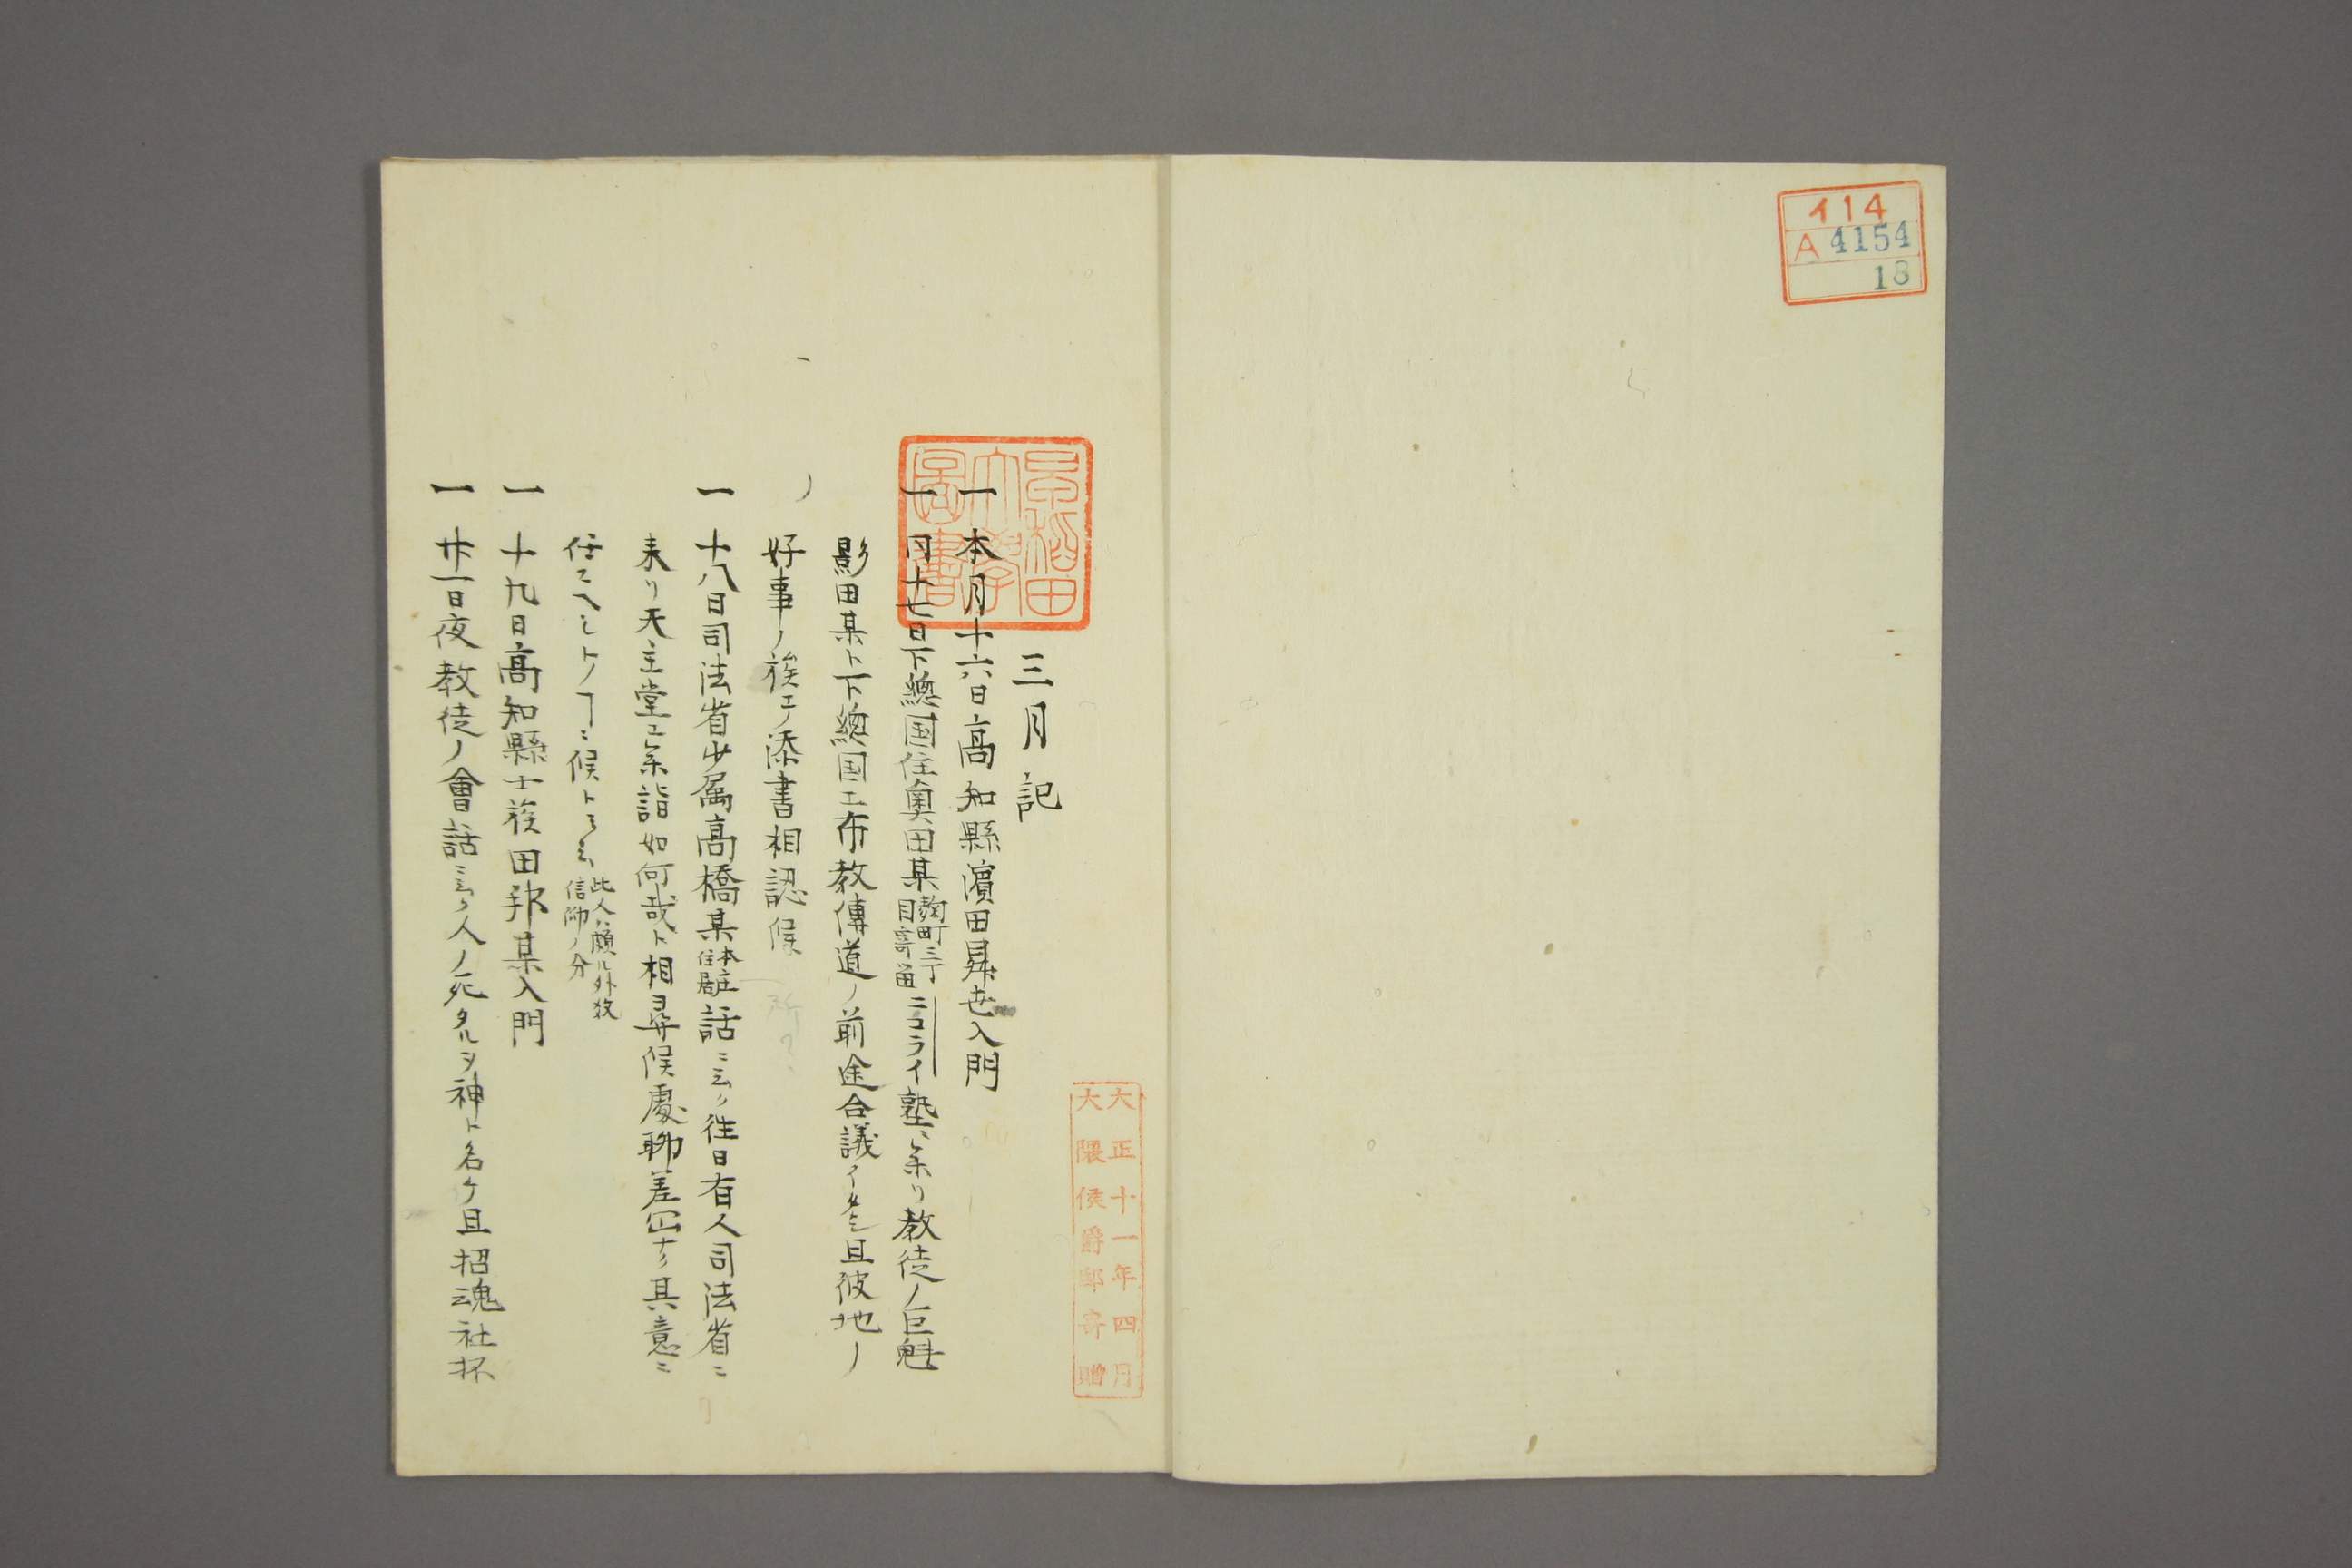 イ14
A 4154
18
大正十一年四月
大隈侯爵邸寄贈
早稲田大學圖書
三月記
一 本月十六日高知縣濵田昇世入門
一 同十七日下總国住奥田某麹町三丁目寄留ニコライ塾ニ参リ教徒ノ巨魁
影田某ト下總国エ布教傳道ノ前途合議イタシ且彼地ノ
好事ノ族エノ添書相認候
一 十八日司法省少属髙橋某本庄住居話ニ云ク往日有人司法省ニ
来リ天主堂エ参詣如何哉ト相尋候處聊差碍ナク其意ニ
任スヘシトノヿニ候ト云云此人ハ頗ル外教信仰ノ分
一 十九日髙知縣士族田邨某入門
一 廿一日夜教徒ノ會話ニ云ク人ノ死タルヲ神ト名ケ且招魂社抔